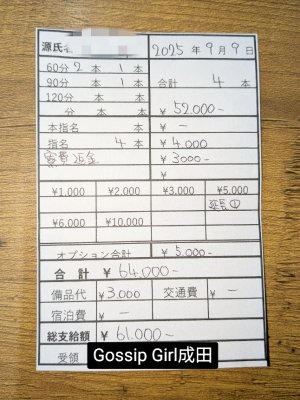 源氏名
2025年9月9日
60分 2 本 1 本
90分 本 1 本 合計 4 本
120分 本 本
分 本 本 ¥ 52,000-
本指名 本 ¥ -
指名 4 本 ¥ 4,000
¥ 3000-
¥
¥1,000 ¥2,000 ¥3,000 ¥5,000
延長①
¥6,000 ¥10,000
オプション合計 ¥ 5,000-
合 計 ¥ 64,000-
備品代 ¥3,000 交通費 ¥ -
宿泊費 ¥ -
総支給額 ¥ 61,000-
受領
Gossip Girl成田